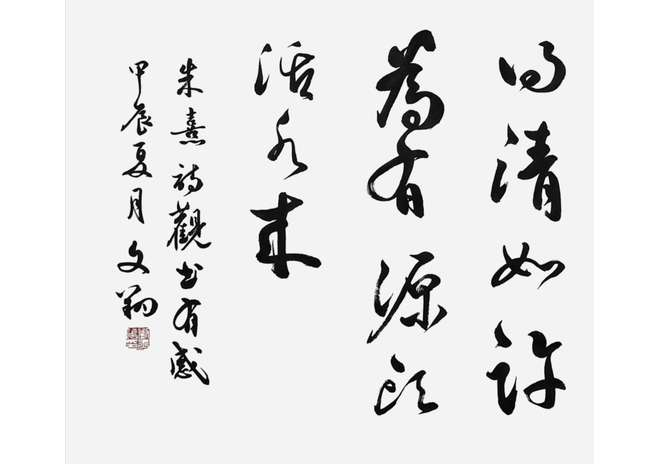 得清如許
為有源頭
活水來
朱熹詩觀書有感
甲辰夏月文翔